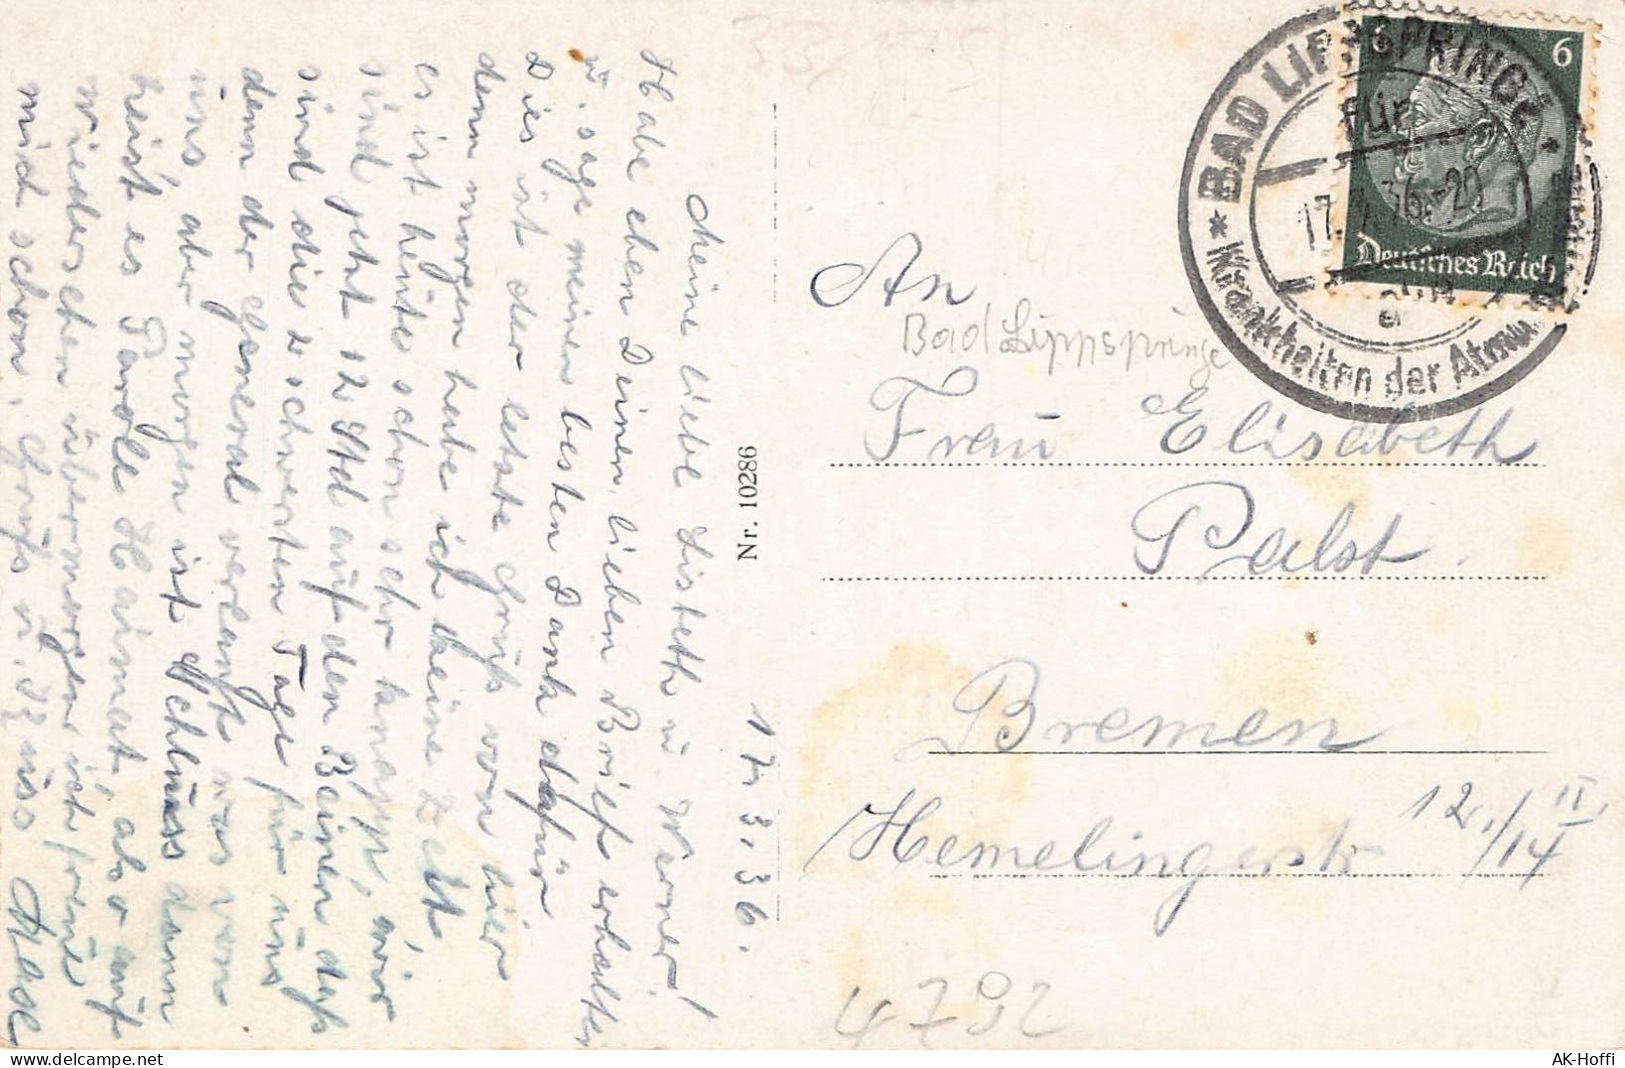 17.3.36.
Meine liebe Lisbeth u. Werner!
Habe eben Deinen lieben Brief erhalten
u. sage meinen besten Dank dafür
Dies ist der letzte Gruß von hier
denn morgen habe ich keine Zeit,
es ist heute schon sehr knapp, wir
sind jetzt 12 Std auf den Beinen daß
sind die 2 schwersten Tage für uns
denn der General verlangt was von
uns, aber morgen ist Schluss dann
heist es Parole Haimat, also auf
wiedersehen übermorgen ich freue
mich schon. Gruß u.
Nr. 10286
BAD LIPPSPRINGE
für
17. 36-20
Krankheiten der Atmu
6
Deutsches Reich
An
Bad Lippspringe
Frau Elisabeth
Palst
Bremen
Hemelingerstr 12./14 II
4792
www.delcampe.net
AK-Hoffi